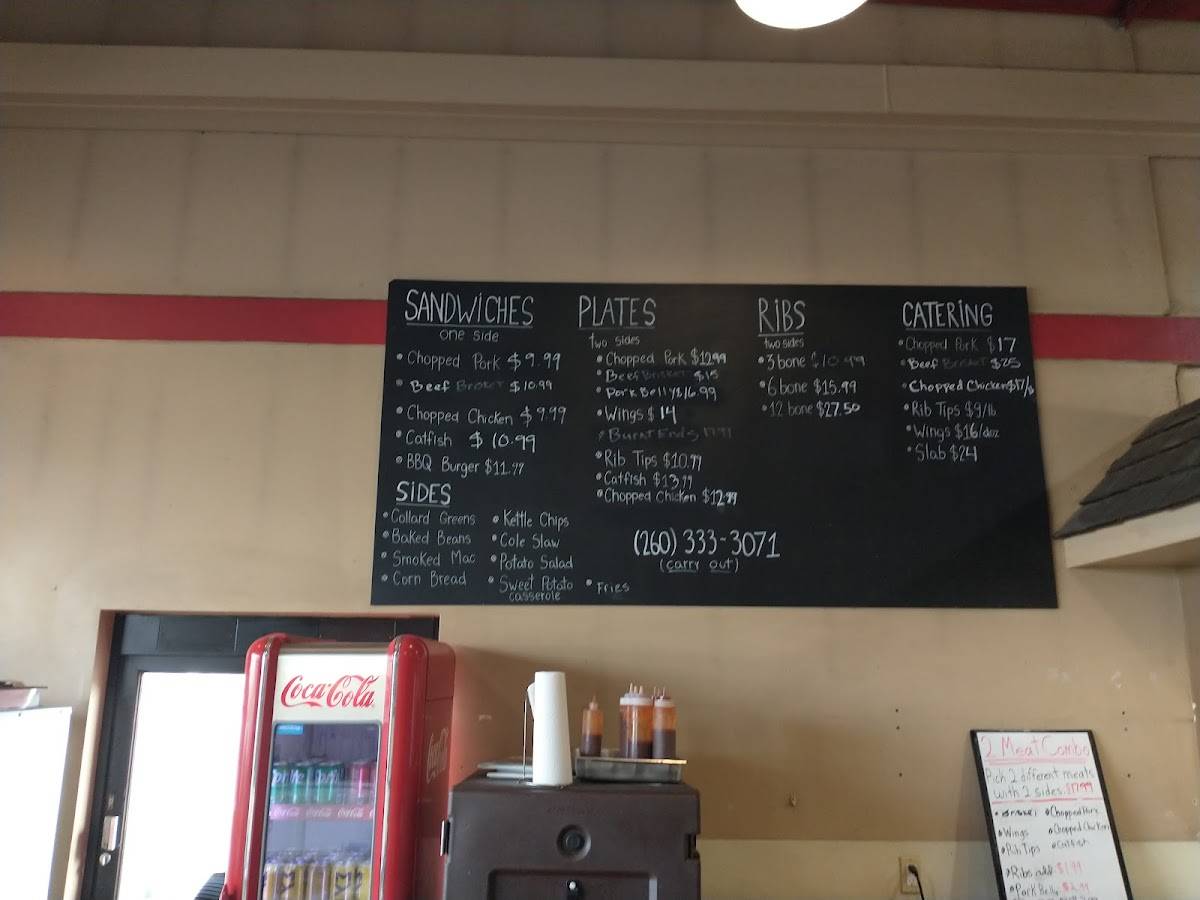 SANDWICHES
one side
• Chopped Pork $9.99
• Beef Brisket $10.99
• Chopped Chicken $9.99
• Catfish $10.99
• BBQ Burger $11.99
SIDES
• Collard Greens
• Baked Beans
• Smoked Mac
• Corn Bread
• Kettle Chips
• Cole Slaw
• Potato Salad
• Sweet Potato
casserole
• Fries
PLATES
two sides
• Chopped Pork $12.99
• Beef Brisket $15
• Pork Belly $16.99
• Wings $14
• Burnt Ends 17.99
• Rib Tips $10.99
• Catfish $13.99
• Chopped Chicken $12.99
(260) 333-3071
(carry out)
RIBS
two sides
• 3 bone $10.99
• 6 bone $15.99
• 12 bone $27.50
CATERING
• Chopped Pork $17
• Beef Brisket $25
• Chopped Chicken $17/lb
• Rib Tips $9/lb
• Wings $16/doz
• Slab $24
Coca-Cola
Coca-Cola
2 Meat Combo
Pick 2 different meats
with 2 sides $17.99
• Chopped Pork
• Wings
• Chopped Chicken
• Rib Tips
• Catfish
• Ribs add $1.99
• Pork Belly $2.99